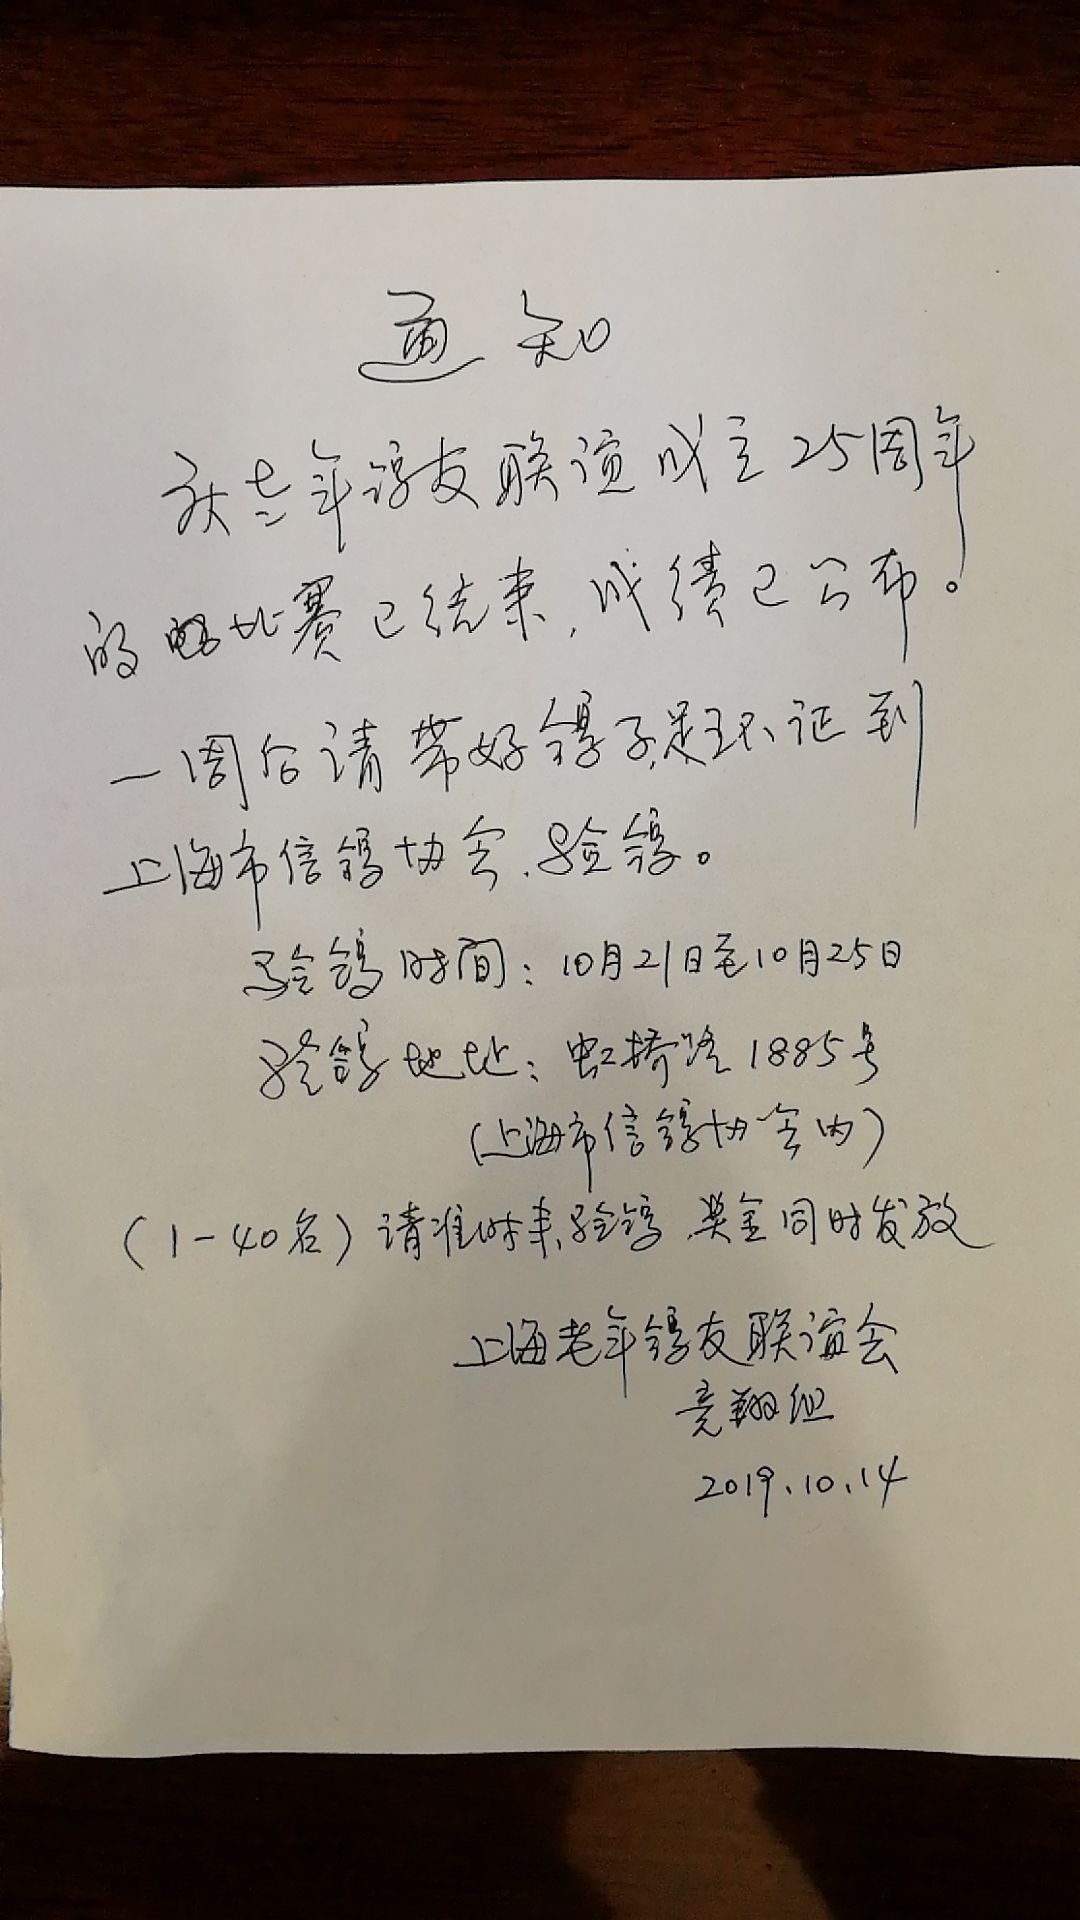 通知
庆老年鸽友联谊成立25周年
的比赛已结束,成绩已公布。
一周后请带好鸽子,足环证到
上海市信鸽协会,验鸽。
验鸽时间:10月21日至10月25日
验鸽地址:虹桥路1885号
(上海市信鸽协会内)
(1-40名)请准时来验鸽,奖金同时发放
上海老年鸽友联谊会
竞翔组
2019.10.14